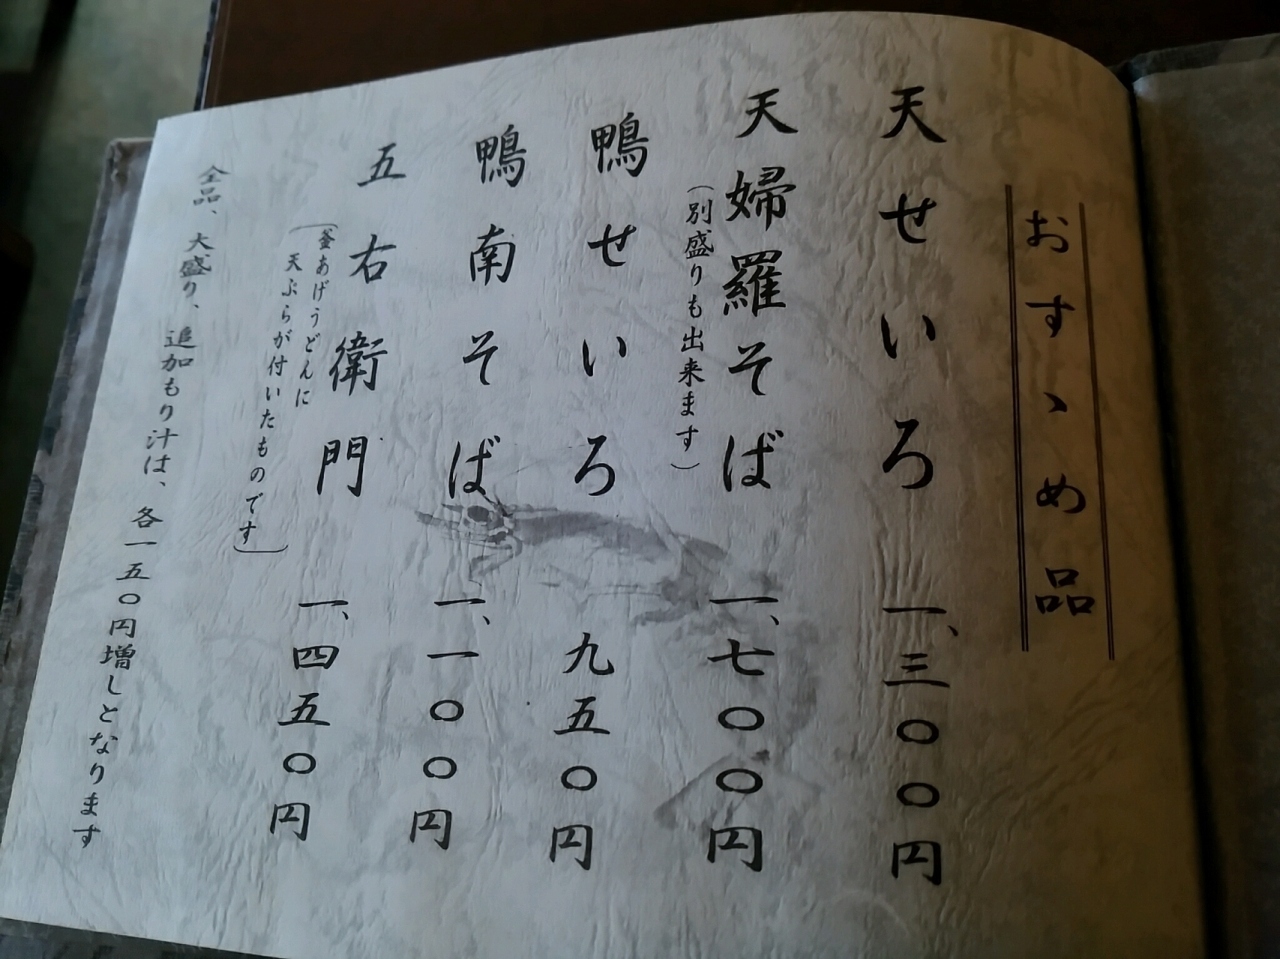 おすゝめ品
天せいろ 一、三〇〇円
天婦羅そば 一、七〇〇円
(別盛りも出来ます)
鴨せいろ 九五〇円
鴨南そば 一、一〇〇円
五右衛門 一、四五〇円
(釜あげうどんに
天ぷらが付いたものです)
全品、大盛り、追加もり汁は、各一五〇円増しとなります